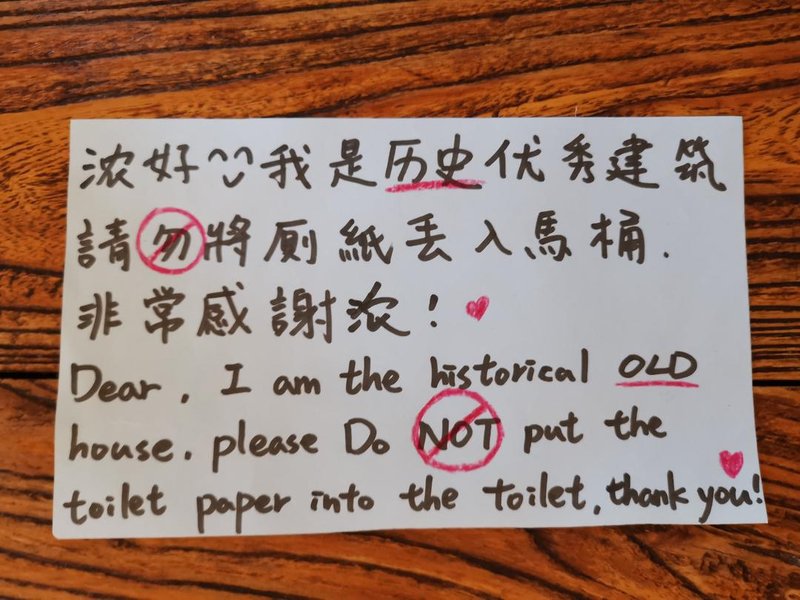 浓好我是历史优秀建筑
請勿將厠紙丢入馬桶.
非常感謝浓!
Dear, I am the historical OLD
house. please Do NOT put the
toilet paper into the toilet, thank you!